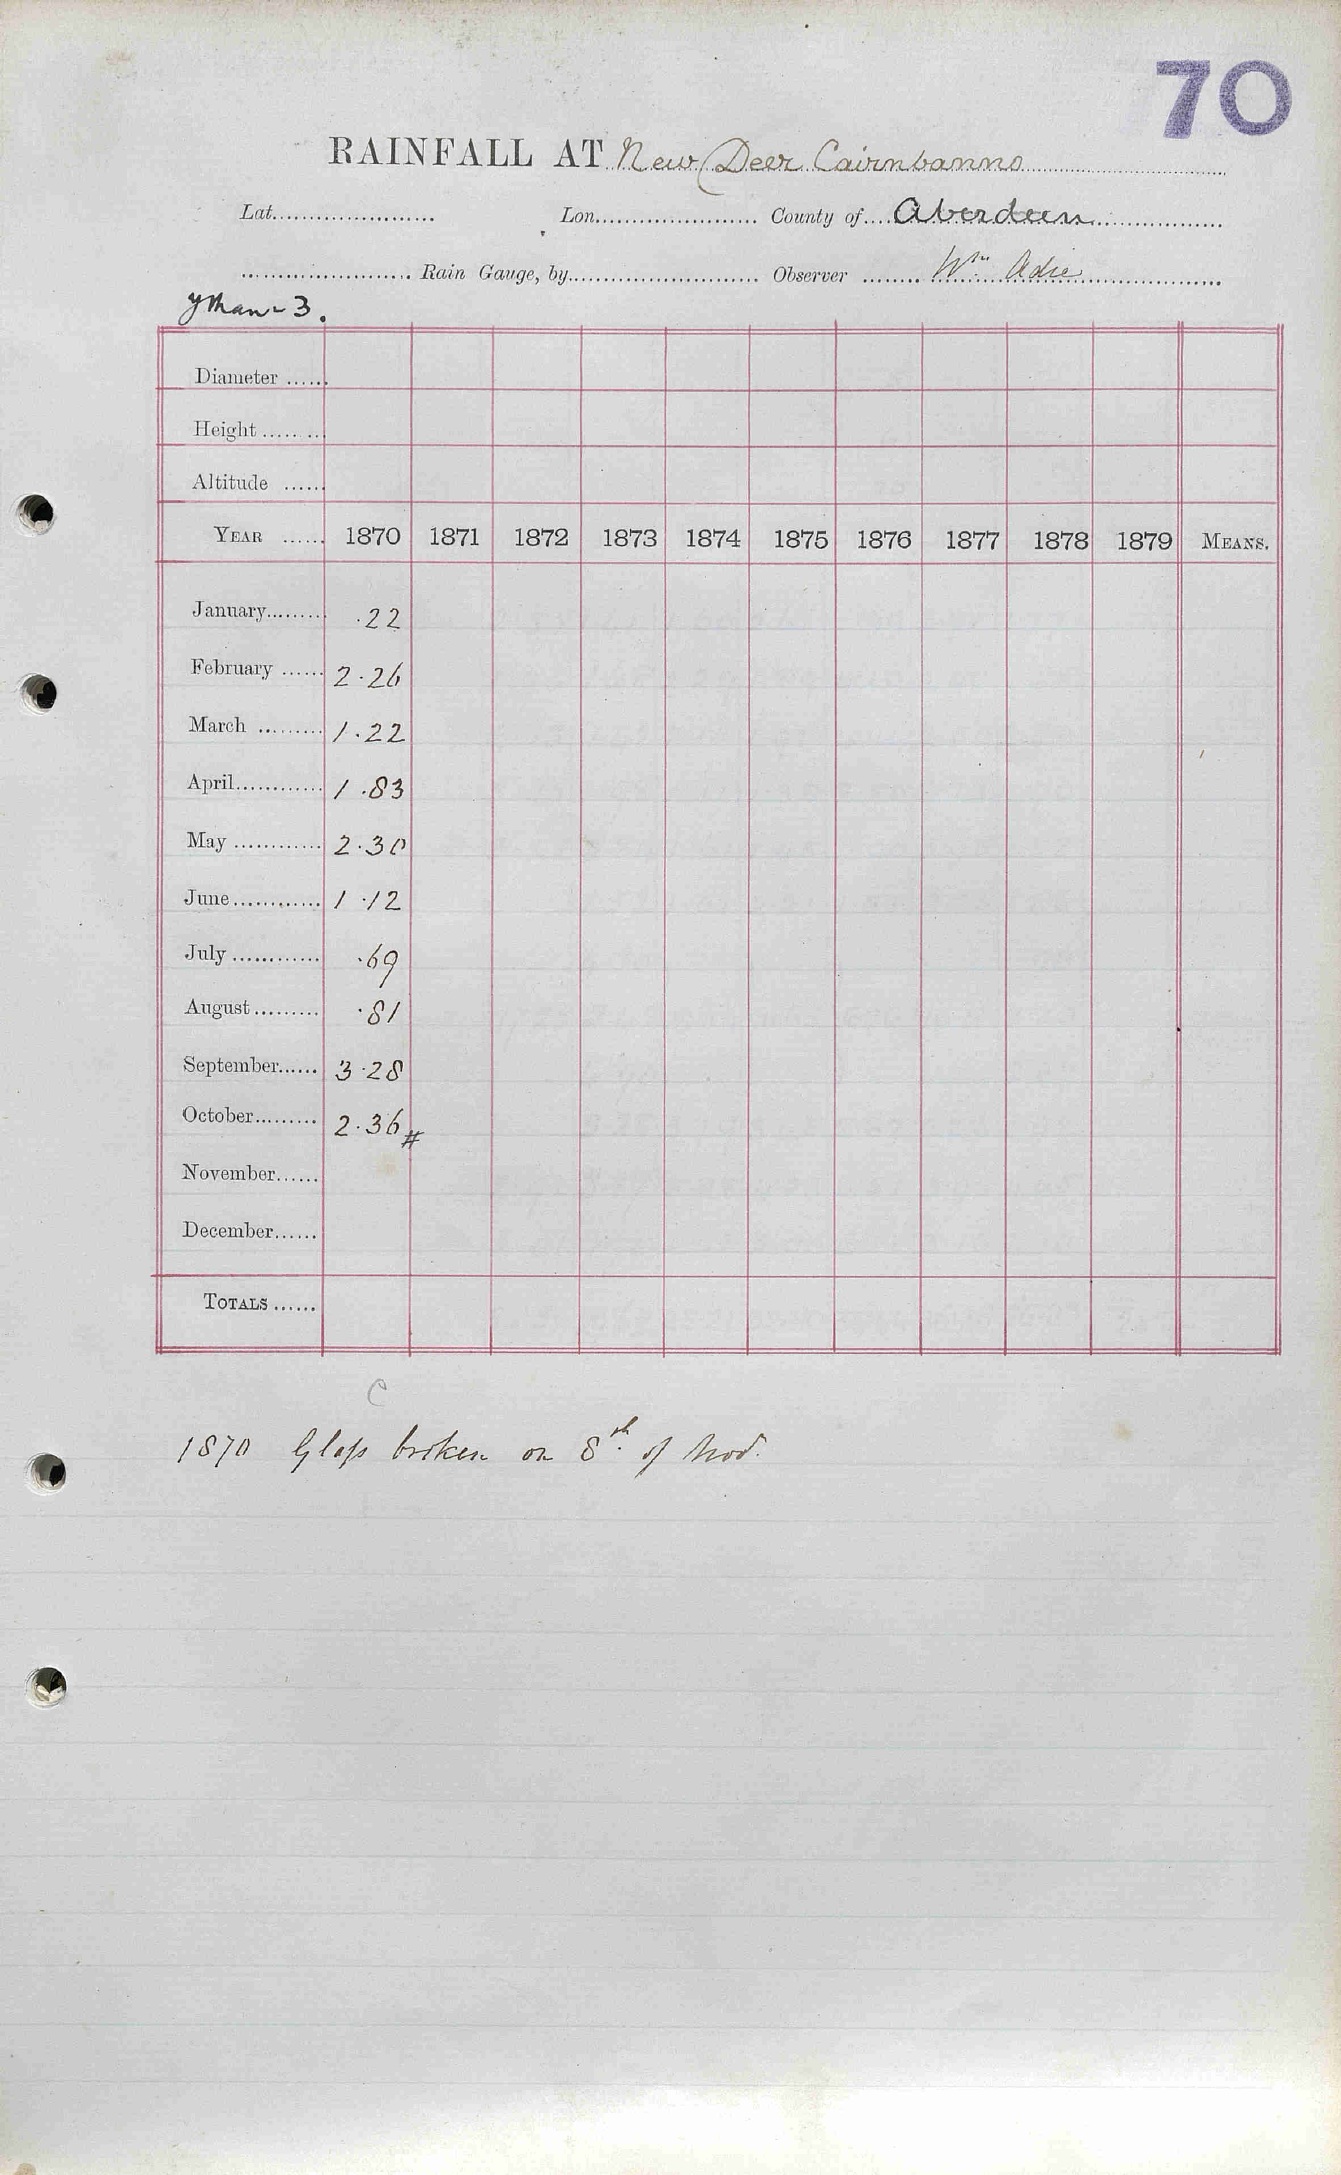 70
RAINFALL AT New Deer Cairnbanno
Lat...................... Lon...................... County of.... Aberdeen
...................... Rain Gauge, by.......................... Observer ........ Wm. Adie
Ythan - 3.
Diameter ......
Height ........
Altitude ......
YEAR ...... 1870 1871 1872 1873 1874 1875 1876 1877 1878 1879 MEANS.
January......... .22
February ...... 2.26
March ......... 1.22
April............ 1.83
May ............ 2.30
June............ 1.12
July ............ .69
August......... .81
September...... 3.28
October......... 2.36 #
November......
December......
TOTALS ......
C
1870 Glass broken on 8th. of Nov.